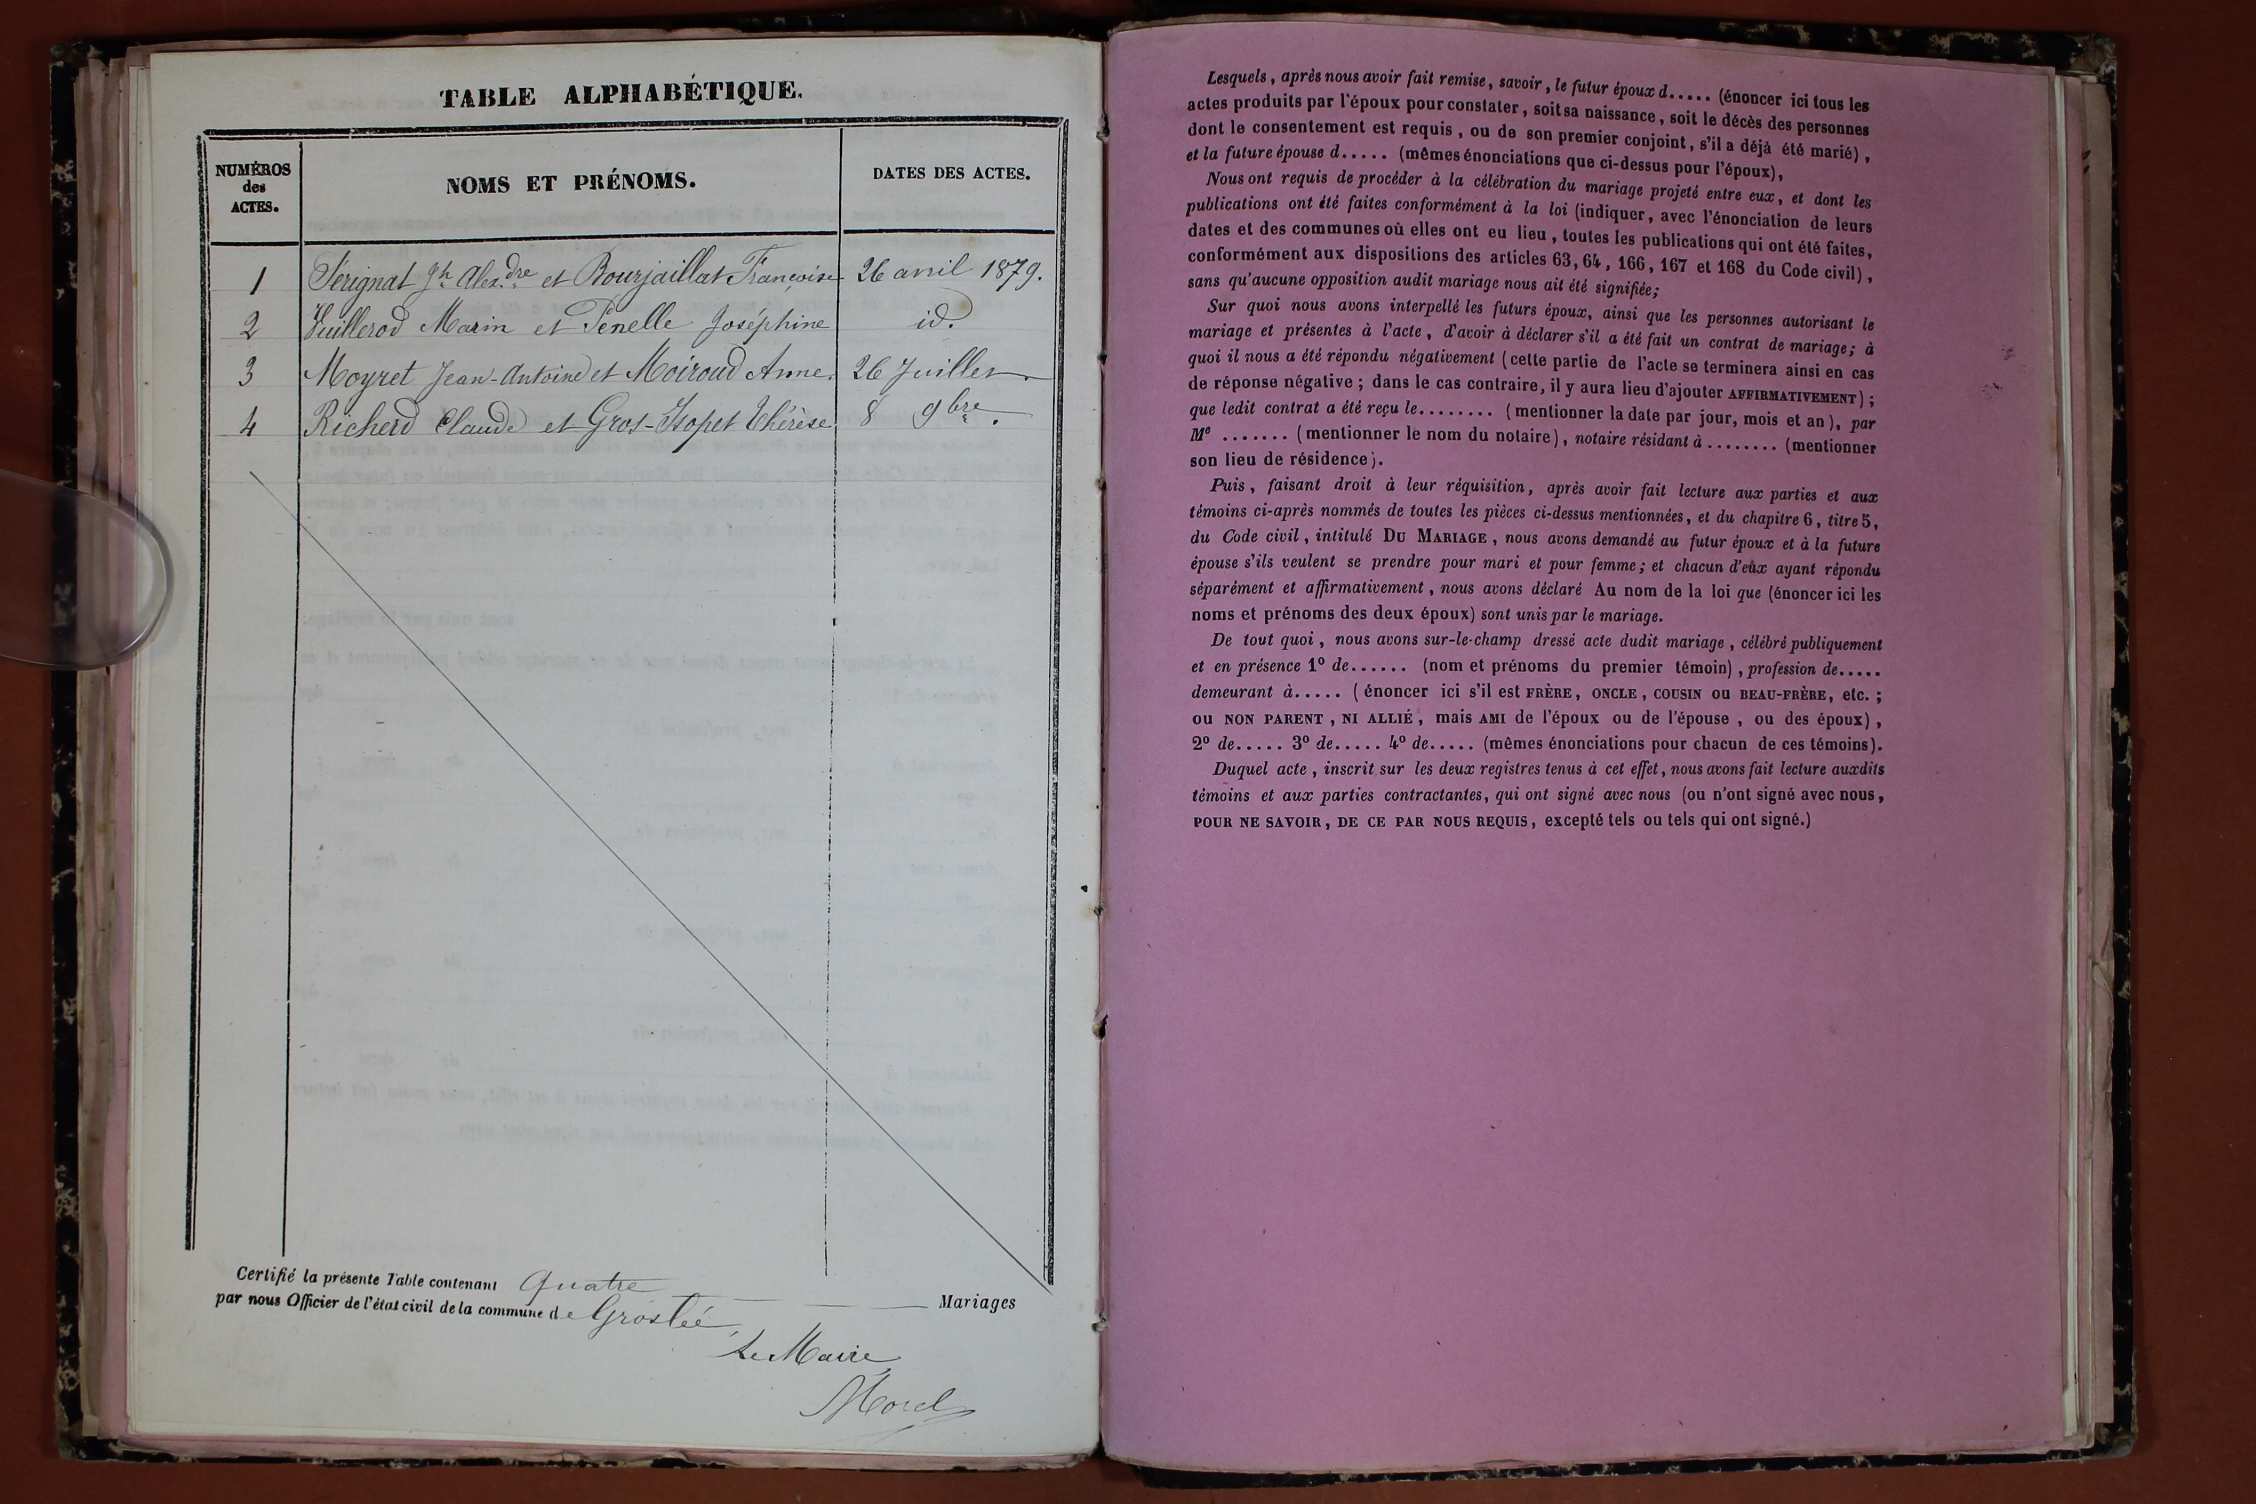 TABLE ALPHABÉTIQUE.
NUMÉROS
des
ACTES.
NOMS ET PRÉNOMS.
DATES DES ACTES.
1 Sérignat Jh Alexdre et Bourjaillat Françoise 26 avril 1879.
2 Vuillerod Marin et Penelle Joséphine id.
3 Moyret Jean-Antoine et Moiroud Anne. 26 Juillet.
4 Richerd Claude et Gros-Isopet Thérèse 8 9bre.
Certifié la présente Table contenant Quatre Mariages
par nous Officier de l'état civil de la commune de Groslée,
Le Maire,
Morel
Lesquels, après nous avoir fait remise, savoir, le futur époux d..... (énoncer ici tous les
actes produits par l'époux pour constater, soit sa naissance, soit le décès des personnes
dont le consentement est requis, ou de son premier conjoint, s'il a déjà été marié),
et la future épouse d..... (mêmes énonciations que ci-dessus pour l'époux),
Nous ont requis de procéder à la célébration du mariage projeté entre eux, et dont les
publications ont été faites conformément à la loi (indiquer, avec l'énonciation de leurs
dates et des communes où elles ont eu lieu, toutes les publications qui ont été faites,
conformément aux dispositions des articles 63, 64, 166, 167 et 168 du Code civil),
sans qu'aucune opposition audit mariage nous ait été signifiée;
Sur quoi nous avons interpellé les futurs époux, ainsi que les personnes autorisant le
mariage et présentes à l'acte, d'avoir à déclarer s'il a été fait un contrat de mariage; à
quoi il nous a été répondu négativement (cette partie de l'acte se terminera ainsi en cas
de réponse négative; dans le cas contraire, il y aura lieu d'ajouter AFFIRMATIVEMENT);
que ledit contrat a été reçu le........ (mentionner la date par jour, mois et an), par
Me ....... (mentionner le nom du notaire), notaire résidant à ........ (mentionner
son lieu de résidence).
Puis, faisant droit à leur réquisition, après avoir fait lecture aux parties et aux
témoins ci-après nommés de toutes les pièces ci-dessus mentionnées, et du chapitre 6, titre 5,
du Code civil, intitulé DU MARIAGE, nous avons demandé au futur époux et à la future
épouse s'ils veulent se prendre pour mari et pour femme; et chacun d'eux ayant répondu
séparément et affirmativement, nous avons déclaré Au nom de la loi que (énoncer ici les
noms et prénoms des deux époux) sont unis par le mariage.
De tout quoi, nous avons sur-le-champ dressé acte dudit mariage, célébré publiquement
et en présence 1º de...... (nom et prénoms du premier témoin), profession de.....
demeurant à..... (énoncer ici s'il est FRÈRE, ONCLE, COUSIN OU BEAU-FRÈRE, etc.;
ou NON PARENT, NI ALLIÉ, mais AMI de l'époux ou de l'épouse, ou des époux),
2º de..... 3º de..... 4º de..... (mêmes énonciations pour chacun de ces témoins).
Duquel acte, inscrit sur les deux registres tenus à cet effet, nous avons fait lecture auxdits
témoins et aux parties contractantes, qui ont signé avec nous (ou n'ont signé avec nous,
POUR NE SAVOIR, DE CE PAR NOUS REQUIS, excepté tels ou tels qui ont signé.)